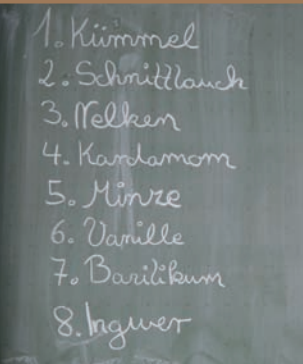 1. Kümmel
2. Schnittlauch
3. Nelken
4. Kardamom
5. Minze
6. Vanille
7. Basilikum
8. Ingwer